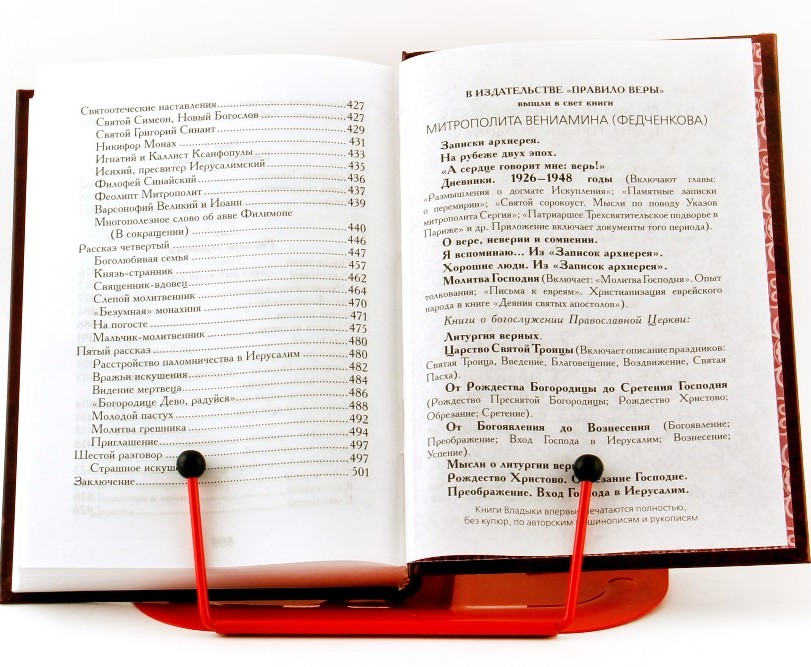 Святоотеческие наставления 427
Святой Симеон, Новый Богослов 427
Святой Григорий Синаит 429
Никифор Монах 431
Игнатий и Каллист Ксанфопулы 433
Исихий, пресвитер Иерусалимский 435
Филофей Синайский 436
Феолипт Митрополит 437
Варсонофий Великий и Иоанн 439
Многополезное слово об авве Филимоне
(В сокращении) 440
Рассказ четвертый 446
Боголюбивая семья 447
Князь-странник 457
Священник-вдовец 462
Слепой молитвенник 464
«Безумная» монахиня 470
На погосте 471
Мальчик-молитвенник 475
Пятый рассказ 480
Расстройство паломничества в Иерусалим 480
Вражьи искушения 482
Видение мертвеца 484
«Богородице Дево, радуйся» 486
Молодой пастух 488
Молитва грешника 492
Приглашение 494
Шестой разговор 497
Страшное искуш 497
Заключение 501
В ИЗДАТЕЛЬСТВЕ «ПРАВИЛО ВЕРЫ»
вышли в свет книги
МИТРОПОЛИТА ВЕНИАМИНА (ФЕДЧЕНКОВА)
Записки архиерея.
На рубеже двух эпох.
«А сердце говорит мне: верь!»
Дневники. 1926–1948 годы (Включают главы:
«Размышления о догмате Искупления»; «Памятные записки
о перемирии»; «Святой сорокоуст. Мысли по поводу Указов
митрополита Сергия»; «Патриаршее Трехсвятительское подворье в
Париже» и др. Приложение включает документы того периода).
О вере, неверии и сомнении.
Я вспоминаю... Из «Записок архиерея».
Хорошие люди. Из «Записок архиерея».
Молитва Господня (Включает: «Молитва Господня». Опыт
толкования; «Письма к евреям». Христианизация еврейского
народа в книге «Деяния святых апостолов»).
Книги о богослужении Православной Церкви:
Литургия верных.
Царство Святой Троицы (Включает описание праздников:
Святая Троица, Введение, Благовещение, Воздвижение, Святая
Пасха).
От Рождества Богородицы до Сретения Господня
(Рождество Пресвятой Богородицы; Рождество Христово;
Обрезание; Сретение).
От Богоявления до Вознесения (Богоявление;
Преображение; Вход Господа в Иерусалим; Вознесение;
Успение).
Мысли о литургии вер
Рождество Христово. О езание Господне.
Преображение. Вход Го ода в Иерусалим.
Книги Владыки впервые печатаются полностью,
без купюр, по авторским шинописям и рукописям